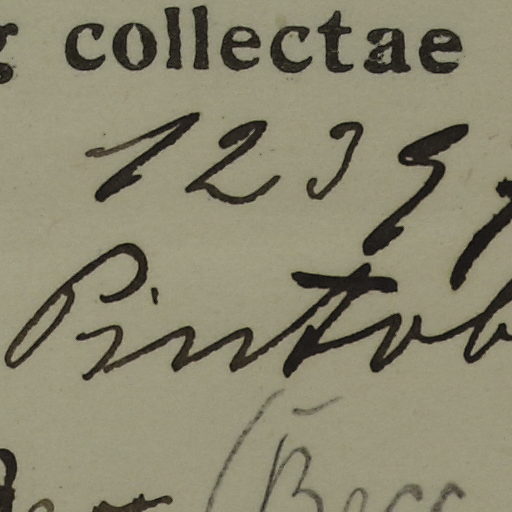 collectae
1239
Pintob
(Becc